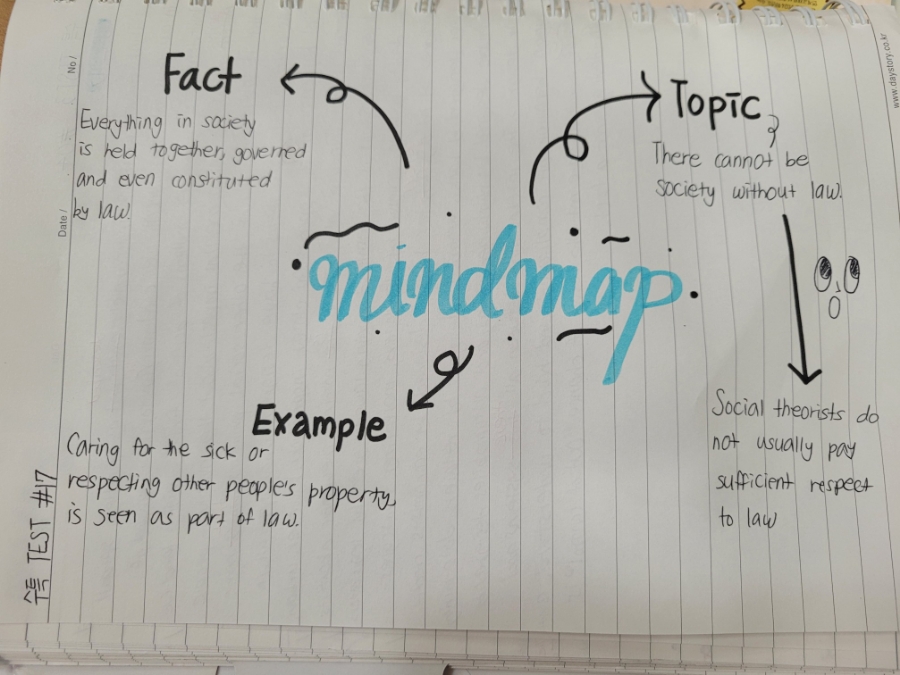 Fact
Everything in society
is held together, governed
and even constituted
by law.
Topic
There cannot be
society without law.
mindmap
Example
Caring for the sick or
respecting other people's property,
is seen as part of law.
Social theorists do
not usually pay
sufficient respect
to law
TEST #17
No /
Date /
www.daystory.co.kr